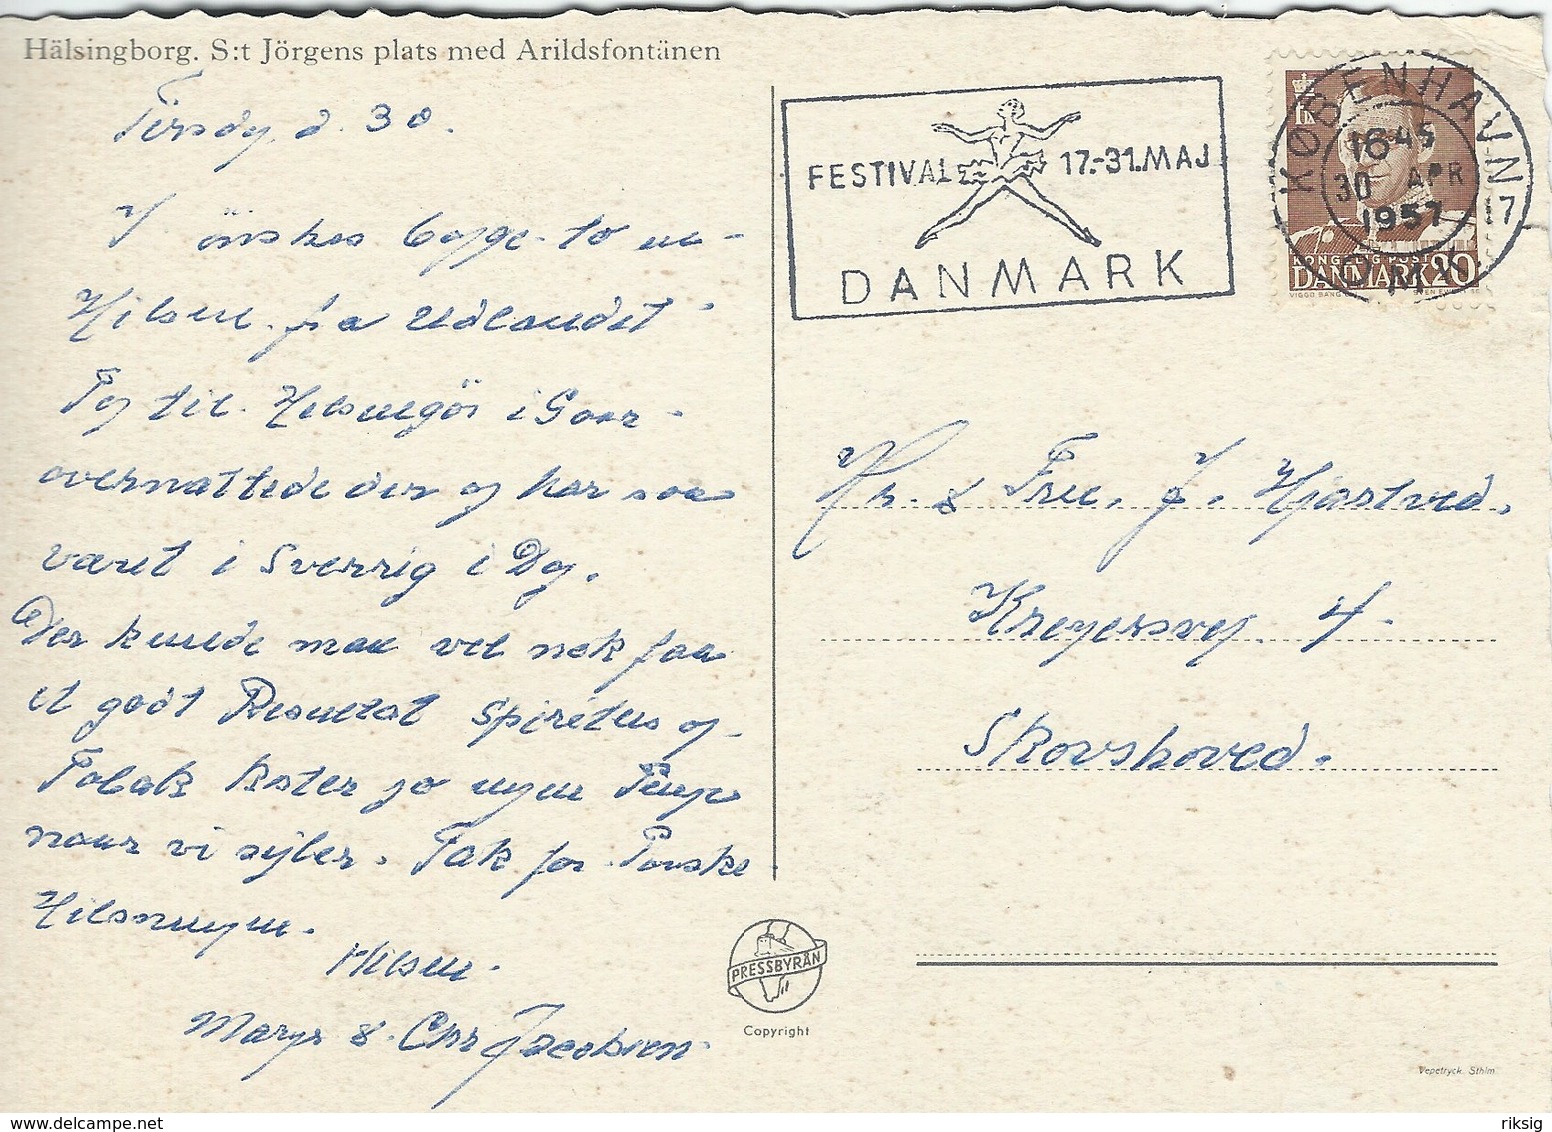 Hälsingborg. S:t Jörgens plats med Arildsfontänen
Tirsdg d. 30.
I önskes begge to en
Hilsen fra Udlandet
Tog til Helsingör i Gaar
overnattede der og har saa
været i Sverrig i Dg.
Der kunde man vel nok faa
et godt Resultat Spiritus og
Tobak koster jo ingen Penge
naar vi sejler. Tak for Paaske
Hilsningen.
Hilsen
Marys & Chr Jacobsen
FESTIVAL 17.-31.MAJ
DANMARK
KØBENHAVN 17
16 45
30 APR
1957
OMK
KONGELIG POST
DANMARK 20
Hr. & Frue. J. Hjastved.
Kreyersvej 4.
Skovshoved.
PRESSBYRÅN
Copyright
Vepetryck. Sthlm
riksig